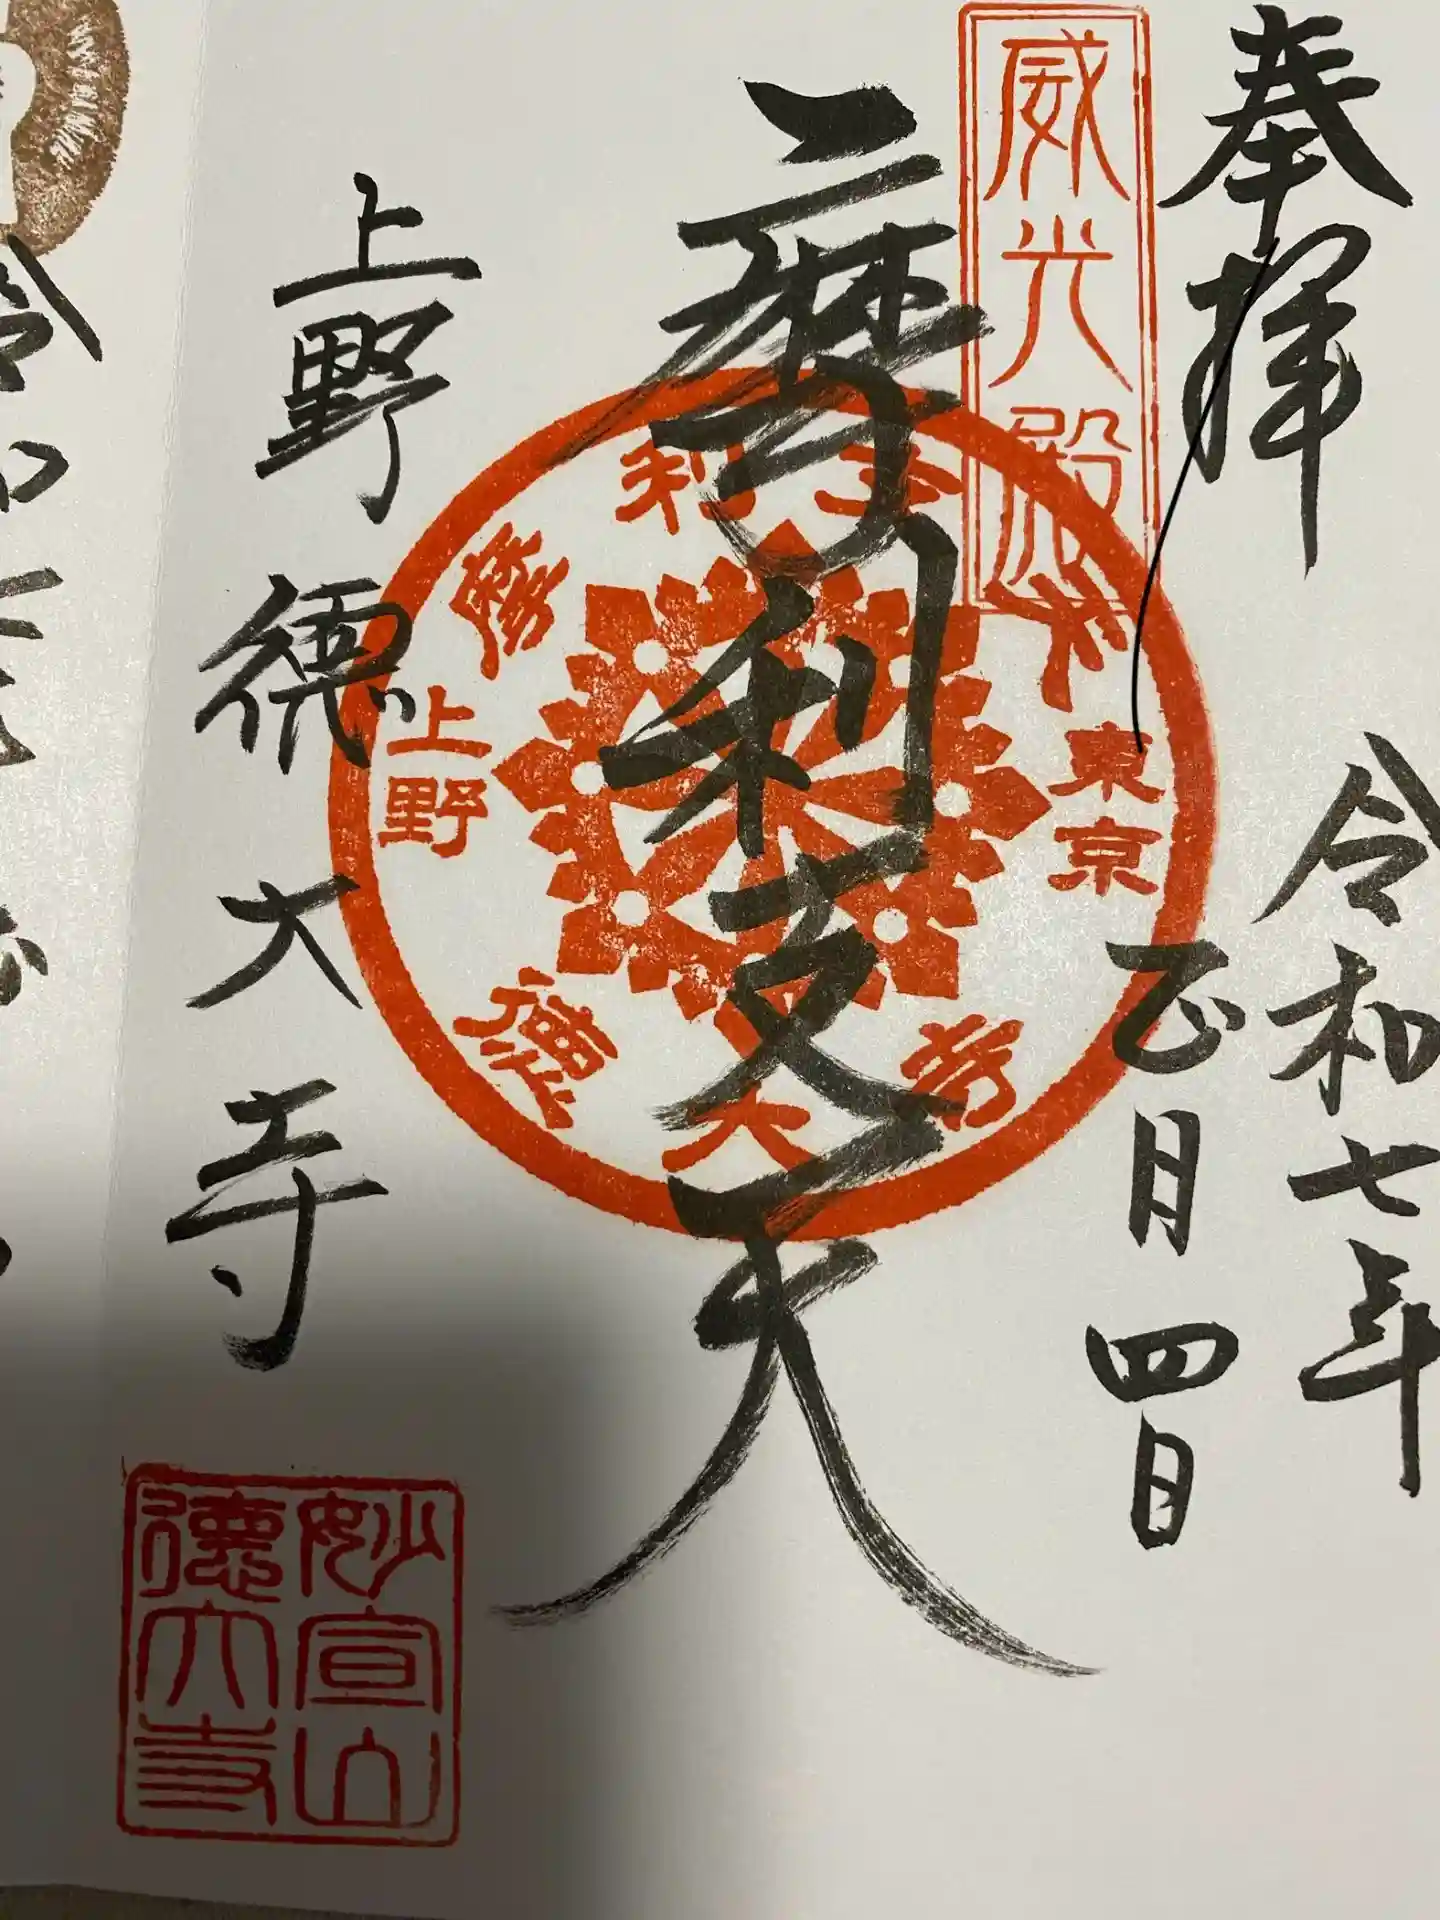 奉拝
令和七年
正月四日
威光殿
摩利支天
東京
摩利支天
上野
徳大寺
上野徳大寺
妙宣山
徳大寺
令和